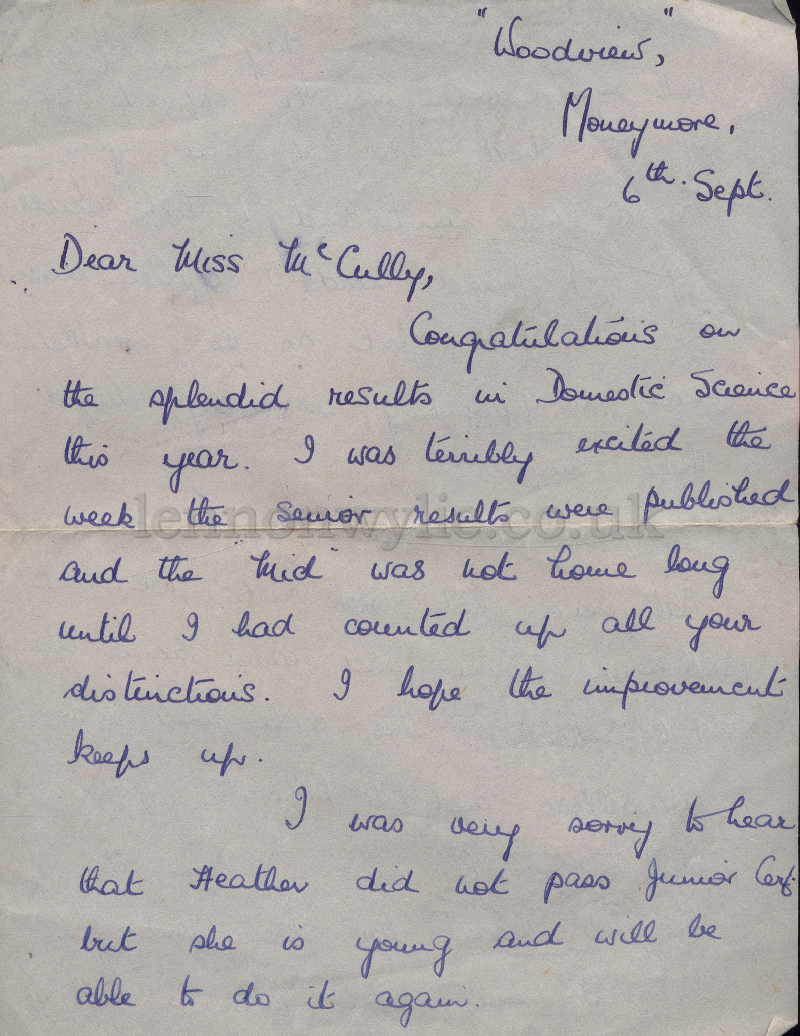 "Woodview",
Moneymore.
6th. Sept.
Dear Miss McCully,
Congratulations on
the splendid results in Domestic Science
this year. I was terribly excited the
week the Senior results were published
lennonwylie.co.uk
and the "Mid" was not home long
until I had counted up all your
distinctions. I hope the improvement
keeps up.
I was very sorry to hear
that Heather did not pass Junior Cert.
but she is young and will be
able to do it again.